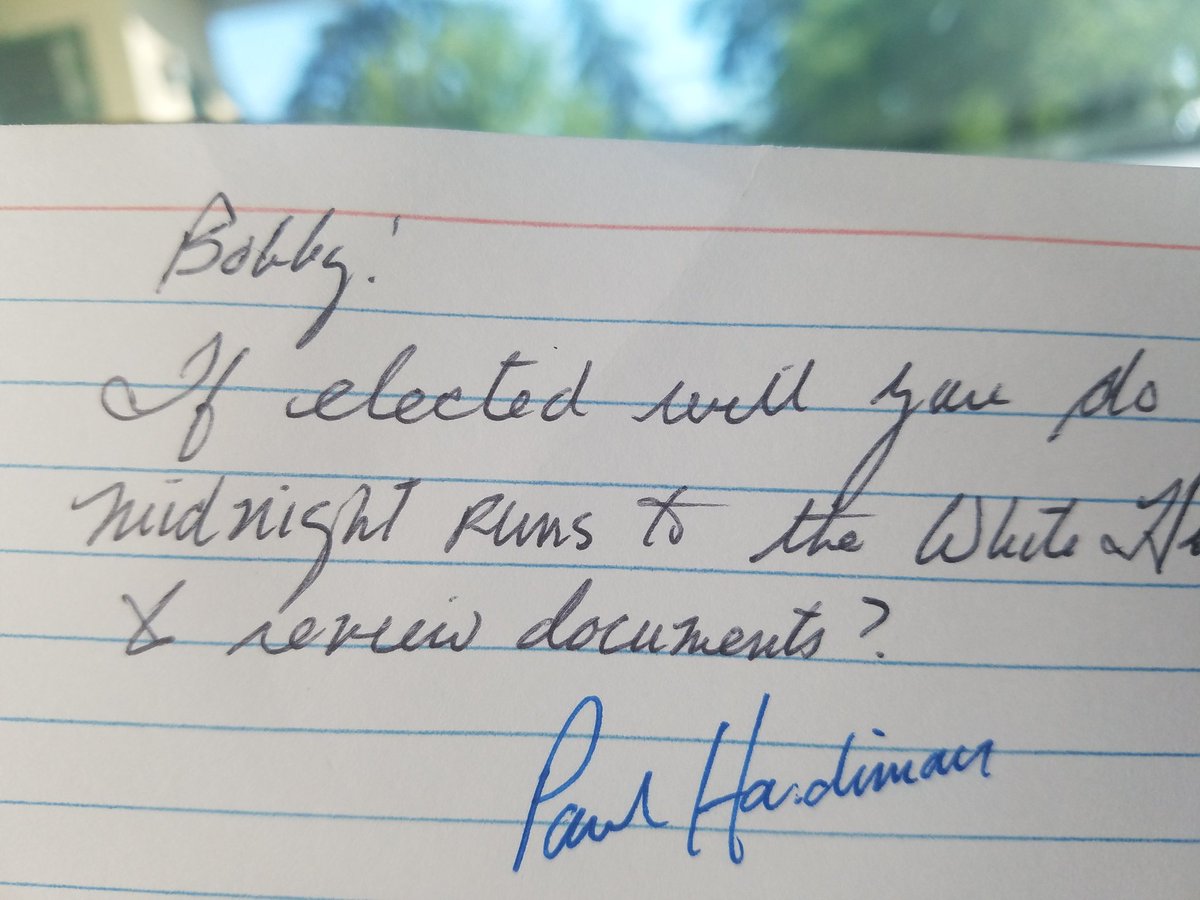 Bobby!
If elected will you do
midnight runs to the White Ho
& review documents?
Paul Hardiman